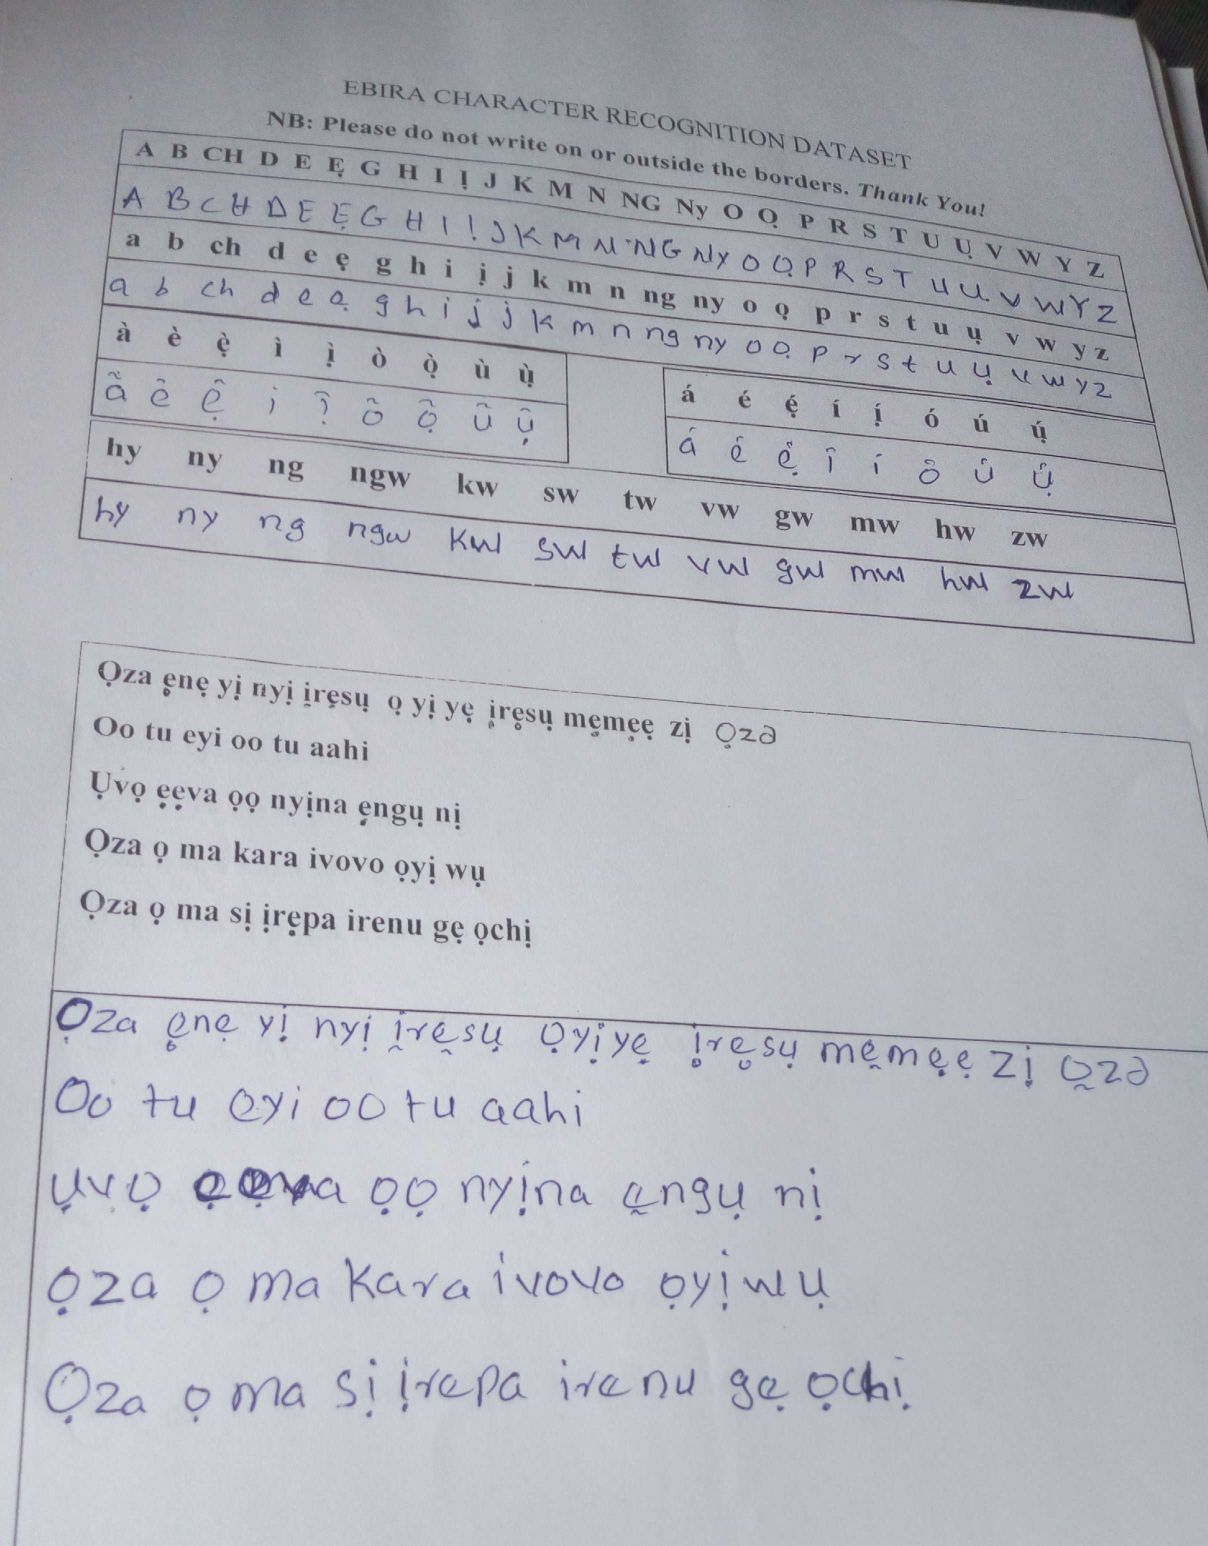 EBIRA CHARACTER RECOGNITION DATASET
NB: Please do not write on or outside the borders. Thank You!
A B CH D E Ẹ G H I Ị J K M N NG Ny O Ọ P R S T U Ụ V W Y Z
A B C H D E Ẹ G H I Ị J K M N NG Ny O Ọ P R S T U Ụ V W Y Z
a b ch d e ẹ g h i ị j k m n ng ny o ọ p r s t u ụ v w y z
a b ch d e ẹ g h i j j k m n ng ny o ọ p r s t u ụ v w y z
à è ẹ̀ ì ị̀ ò ọ̀ ù ụ̀
ã ẽ ẹ̃ i ị̃ õ ọ̃ ũ ụ̃
á é ẹ́ í ị́ ó ú ụ́
á é ẹ́ î í ô ú ụ́
hy ny ng ngw kw sw tw vw gw mw hw zw
hy ny ng ngw kw sw tw vw gw mw hw zw
Ọza ẹnẹ yị nyị ịrẹsụ ọ yị yẹ ịrẹsụ mẹmẹẹ zị ọzə
Oo tu eyi oo tu aahi
Ụvọ ẹẹva ọọ nyịna ẹngụ nị
Ọza ọ ma kara ivovo ọyị wụ
Ọza ọ ma sị ịrẹpa irenu gẹ ọchị
Ọza ẹnẹ yị nyị ịrẹsụ ọyịyẹ ịrẹsụ mẹmẹẹ zị ọzə
Oo tu eyi oo tu aahi
Ụvọ ọọ nyịna ẹngụ nị
Ọza ọ ma kara ivovo ọyị wụ
Ọza ọ ma sị ịrepa irenu gẹ ọchị